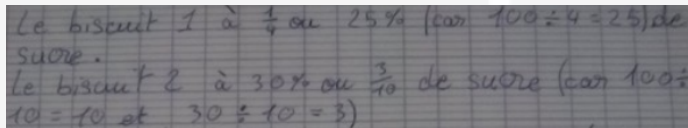 Le biscuit 1 à 1/4 ou 25% (car 100÷4=25) de
sucre.
Le biscuit 2 à 30% ou 3/10 de sucre (car 100÷
10=10 et 30÷10=3)